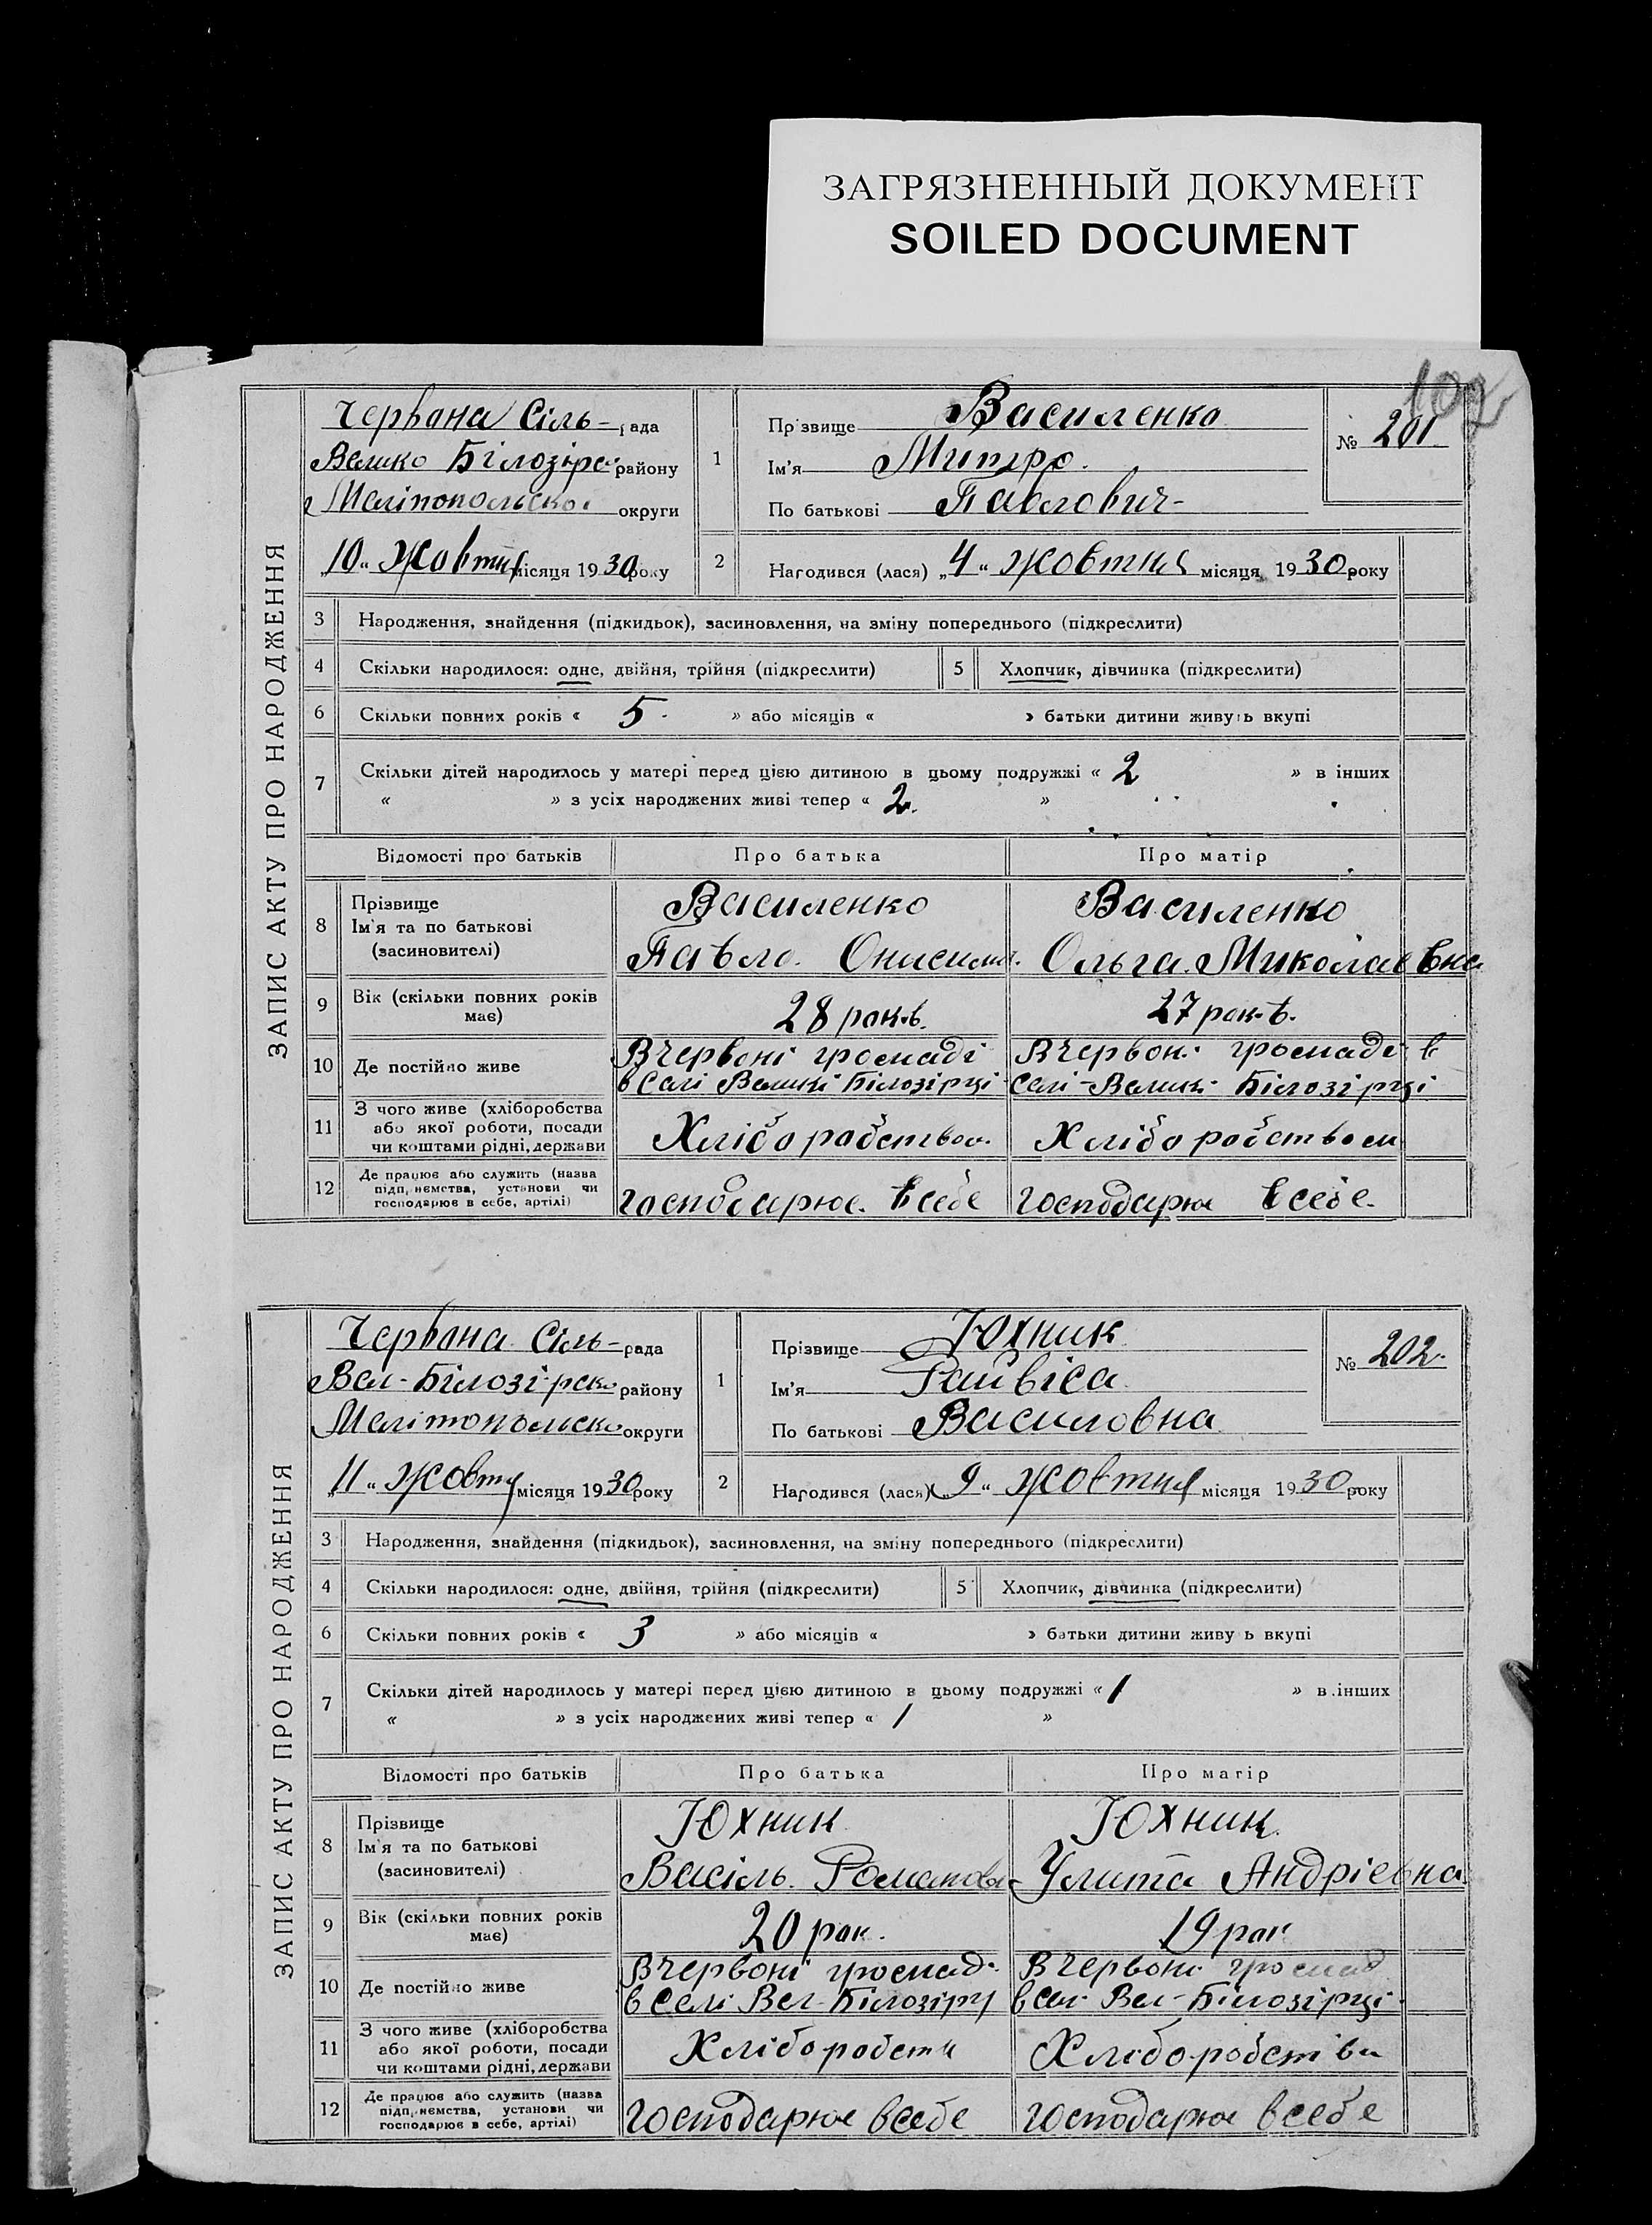 ЗАГРЯЗНЕННЫЙ ДОКУМЕНТ
SOILED DOCUMENT
102
ЗАПИС АКТУ ПРО НАРОДЖЕННЯ
Червона Сіль-рада
Велико Білозірс району
Мелітопольської округи
„10“ Жовтня місяця 1930 року
1
Прізвище Василенко
Ім'я Митро.
По батькові Павлович-
№ 201
2
Народився (лася) „4“ жовтня місяця 1930 року
3 Народження, знайдення (підкидьок), засиновлення, на зміну попереднього (підкреслити)
4 Скільки народилося: одне, двійня, трійня (підкреслити)
5 Хлопчик, дівчинка (підкреслити)
6 Скільки повних років « 5 » або місяців « » батьки дитини живуть вкупі
7 Скільки дітей народилось у матері перед цією дитиною в цьому подружжі « 2 » в інших
« » з усіх народжених живі тепер « 2. »
Відомості про батьків Про батька Про матір
8 Прізвище
Ім'я та по батькові
(засиновителі)
Василенко
Павло. Онисим.
Василенко
Ольга. Миколаєвна
9 Вік (скільки повних років
має)
28 рок.в.
27 рок.в.
10 Де постійно живе
Вчервоні громаді
в селі Великі Білозірці
Вчервон. громаді в
селі-Велик. Білозірці
11 З чого живе (хліборобства
або якої роботи, посади
чи коштами рідні, держави
Хлібо робством.
Хлібо робством
12 Де працює або служить (назва
підприємства, установи чи
господарює в себе, артілі)
господарює. в себе
господарює в себе.
ЗАПИС АКТУ ПРО НАРОДЖЕННЯ
Червона Сіль-рада
Вел-Білозірско району
Мелітопольско округи
„11“ Жовтня місяця 1930 року
1
Прізвище Юхник
Ім'я Раивіса
По батькові Василовна
№ 202.
2
Народився (лася) „9“ жовтня місяця 1930 року
3 Народження, знайдення (підкидьок), засиновлення, на зміну попереднього (підкреслити)
4 Скільки народилося: одне, двійня, трійня (підкреслити)
5 Хлопчик, дівчинка (підкреслити)
6 Скільки повних років « 3 » або місяців « » батьки дитини живу ь вкупі
7 Скільки дітей народилось у матері перед цією дитиною в цьому подружжі « 1 » в інших
« » з усіх народжених живі тепер « 1 »
Відомості про батьків Про батька Про матір
8 Прізвище
Ім'я та по батькові
(засиновителі)
Юхник
Васіль. Романов
Юхник.
Улита Андрієвна
9 Вік (скільки повних років
має)
20 рок.
19 рок
10 Де постійно живе
Вчервоні громад.
в селі Вел-Білозірц
Вчервон. громад
в сел. Вел-Білозірці.
11 З чого живе (хліборобства
або якої роботи, посади
чи коштами рідні, держави
Хлібо робств
Хлібо-робств
12 Де працює або служить (назва
підприємства, установи чи
господарює в себе, артілі)
господарює в себе
господарює в себе